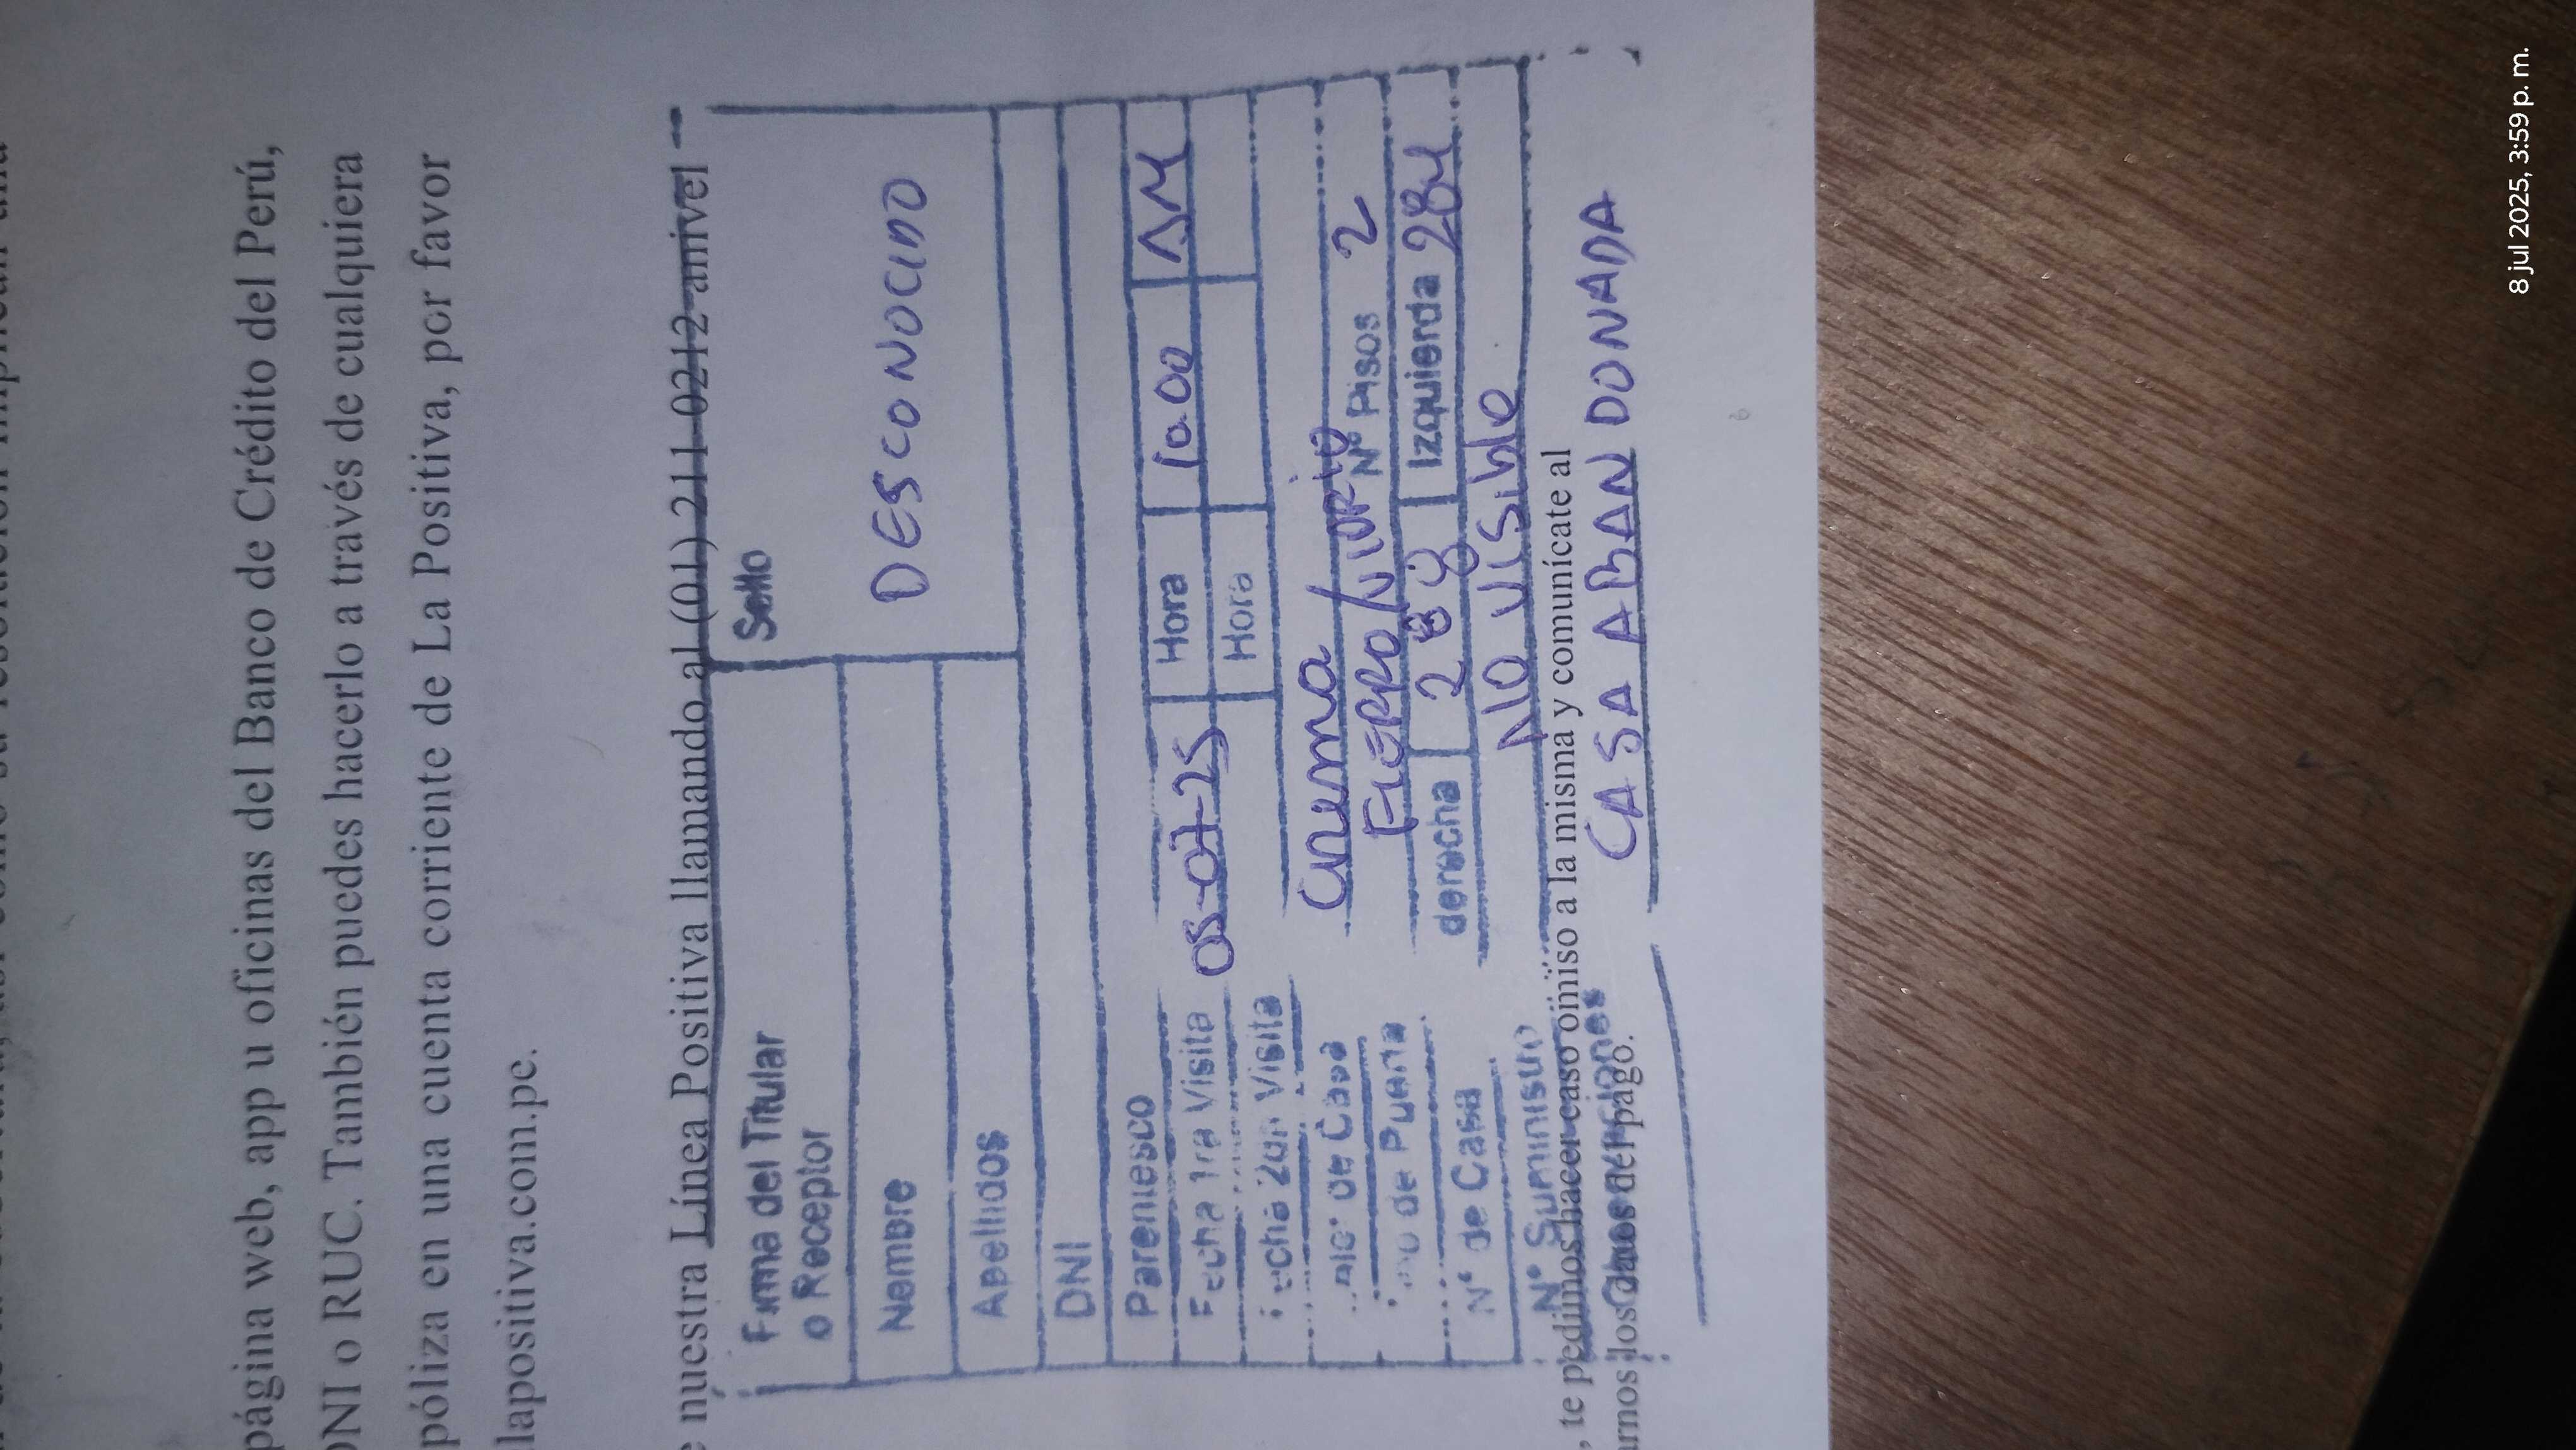 página web, app u oficinas del Banco de Crédito del Perú,
DNI o RUC. También puedes hacerlo a través de cualquiera
póliza en una cuenta corriente de La Positiva, por favor
lapositiva.com.pe.
nuestra Línea Positiva llamando al (01) 211-0212 a nivel
Firma del Titular
o Receptor
Sello
DESCONOCIDO
Nombre
Apellidos
DNI
Parentesco
Fecha 1ra Visita 05-07-25 Hora 10.00 AM
Fecha 2da Visita Hora
de Casa Crema
de Puerta FIERRO/VIDRIO N° Pisos 2
N° de Casa derecha 28 Izquierda 284
N° Suministro NO VISIBLE
, te pedimos hacer caso omiso a la misma y comunícate al
Observaciones CASA ABANDONADA
los datos del pago.
8 jul 2025, 3:59 p. m.